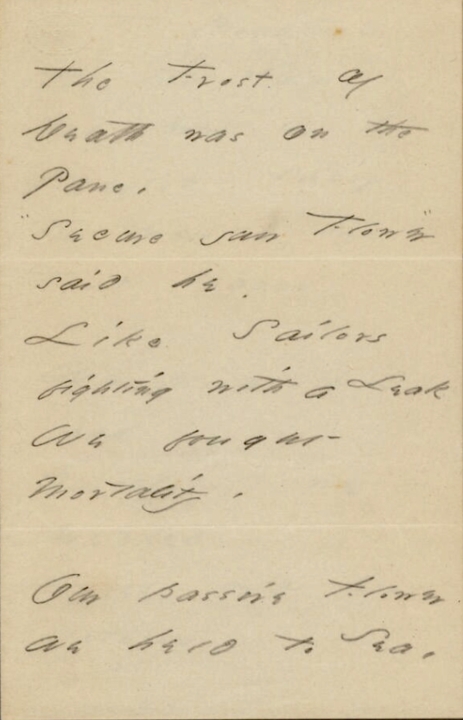 The Frost of
Death was on the
Pane.
"Secure your Flower"
said he.
Like Sailors
fighting with a Leak
We fought
Mortality.
Our passive Flower
we held to Sea.